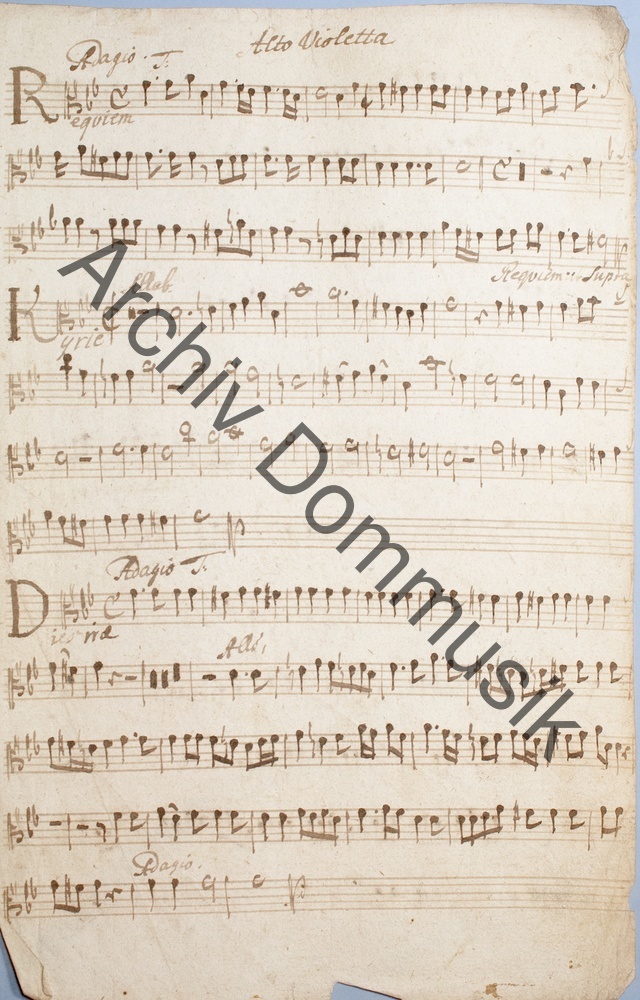 Alto Violetta
Adagio. T.
Requiem
Requiem :: Supra
Allab.
Kyrie
Adagio T.
Dies iræ
Allo:
Adagio.
Archiv Dommusik